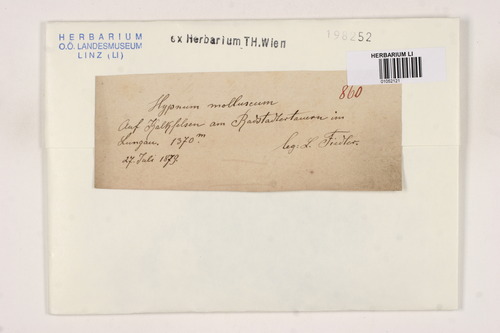 HERBARIUM
O.Ö. LANDESMUSEUM
LINZ (LI)
ex Herbarium TH. Wien
198252
HERBARIUM LI
860
Hypnum molluscum
Auf Kalkfelsen am Radstadtertauern im
Lungau. 1370 m.
27. Juli 1873.
leg: L. Fiedler.